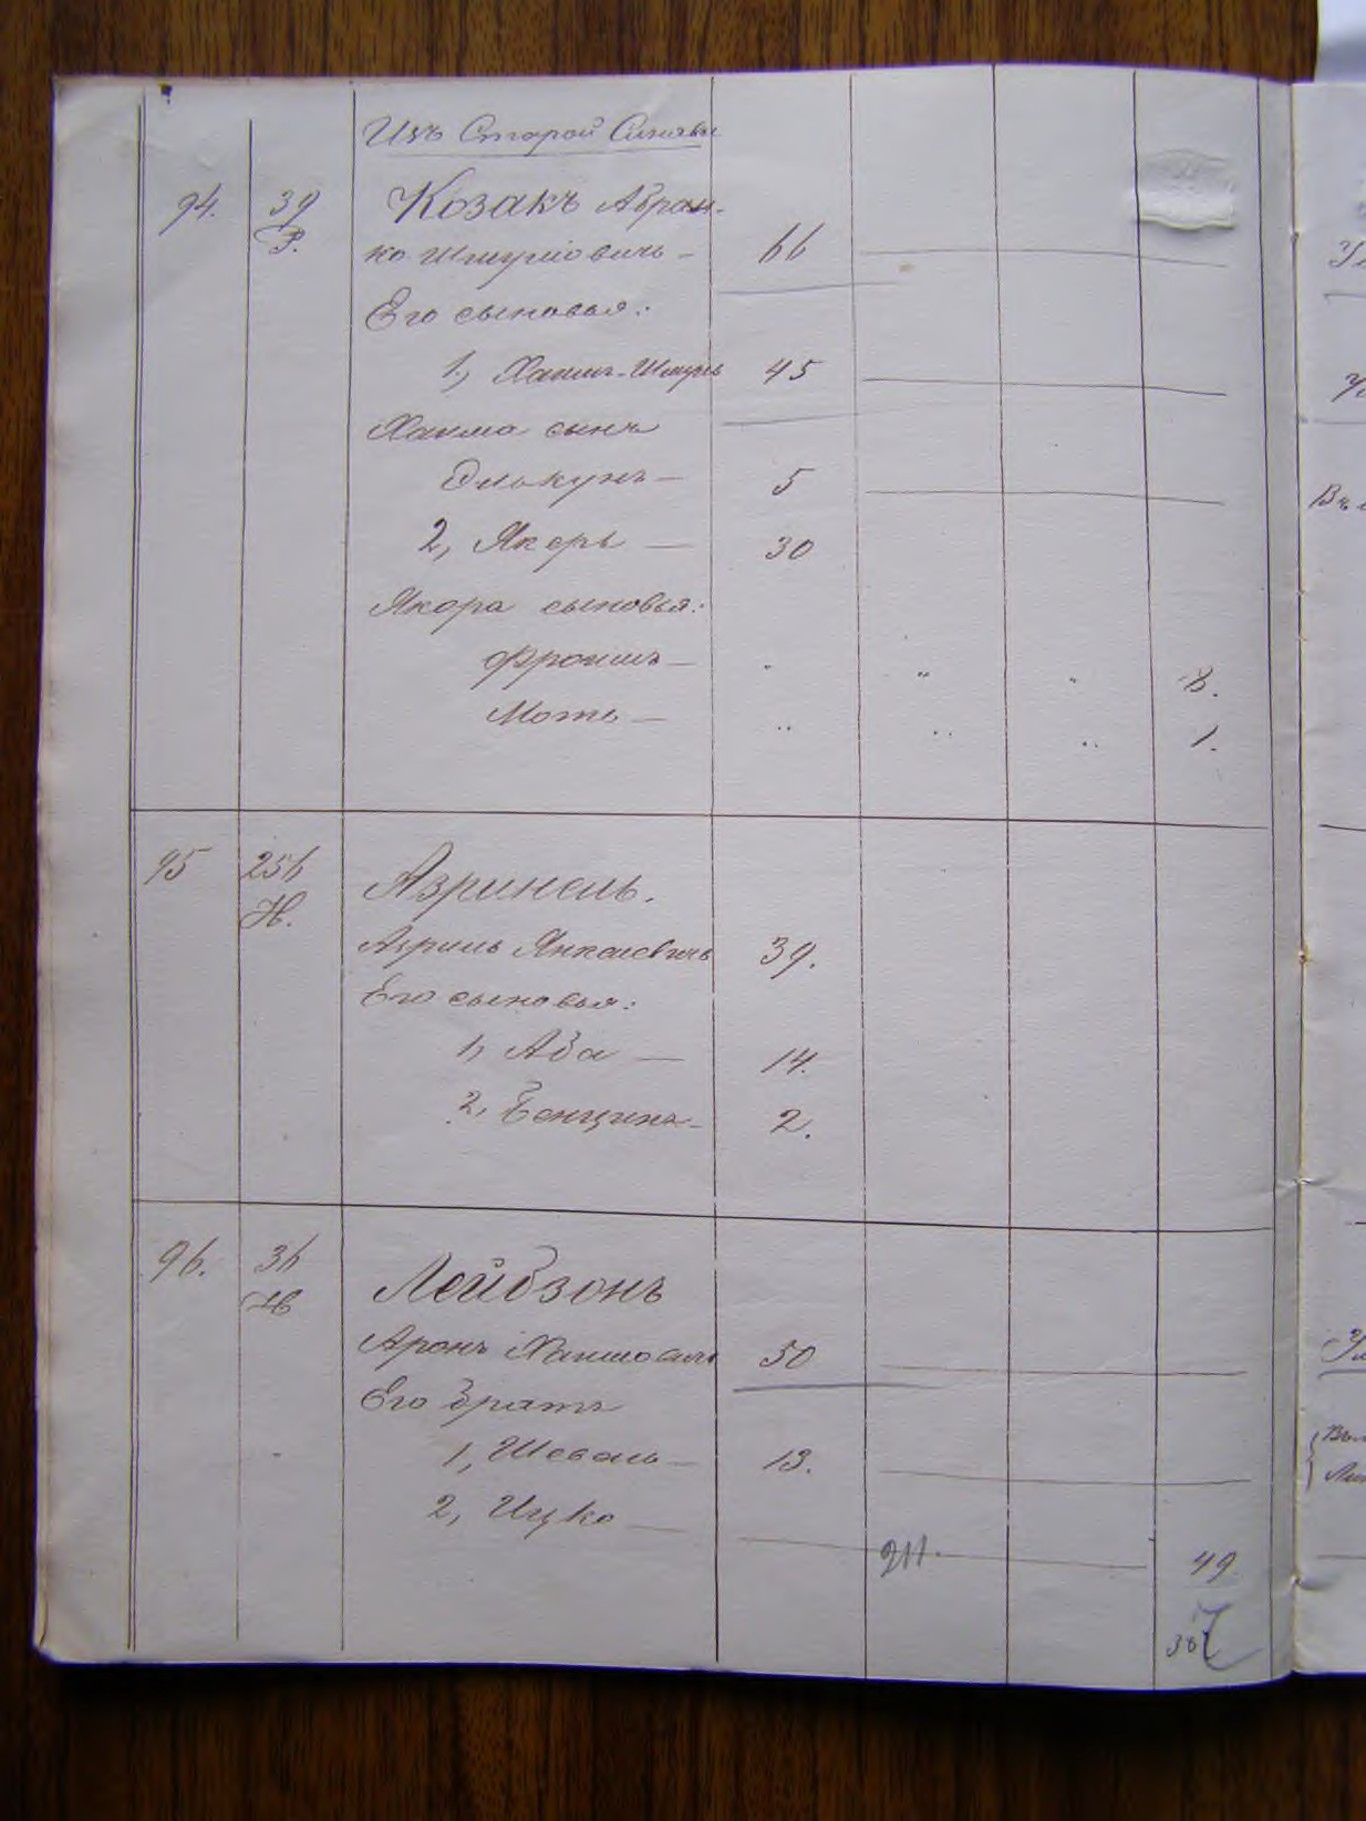 Изъ Старой Синявы
94. 39 Р. Козакъ Абрам-
ко Шмулiовичъ - 66
Его сыновья:
1, Хаимъ-Шмуль 45
Хаима сынъ
Эльокунъ - 5
2, Якерь - 30
Якера сыновья:
Фроимъ - " " " 8.
Моть - " " " 1.
95 256 Н. Азринель.
Азриль Янкелевичъ 39.
Его сыновья:
1, Аба - 14.
2, Бенционъ - 2.
96. 36 Н Лейбзонъ
Аронъ Хаимовичъ 50
Его братъ
1, Шевель - 13.
2, Ицко - 49
211.